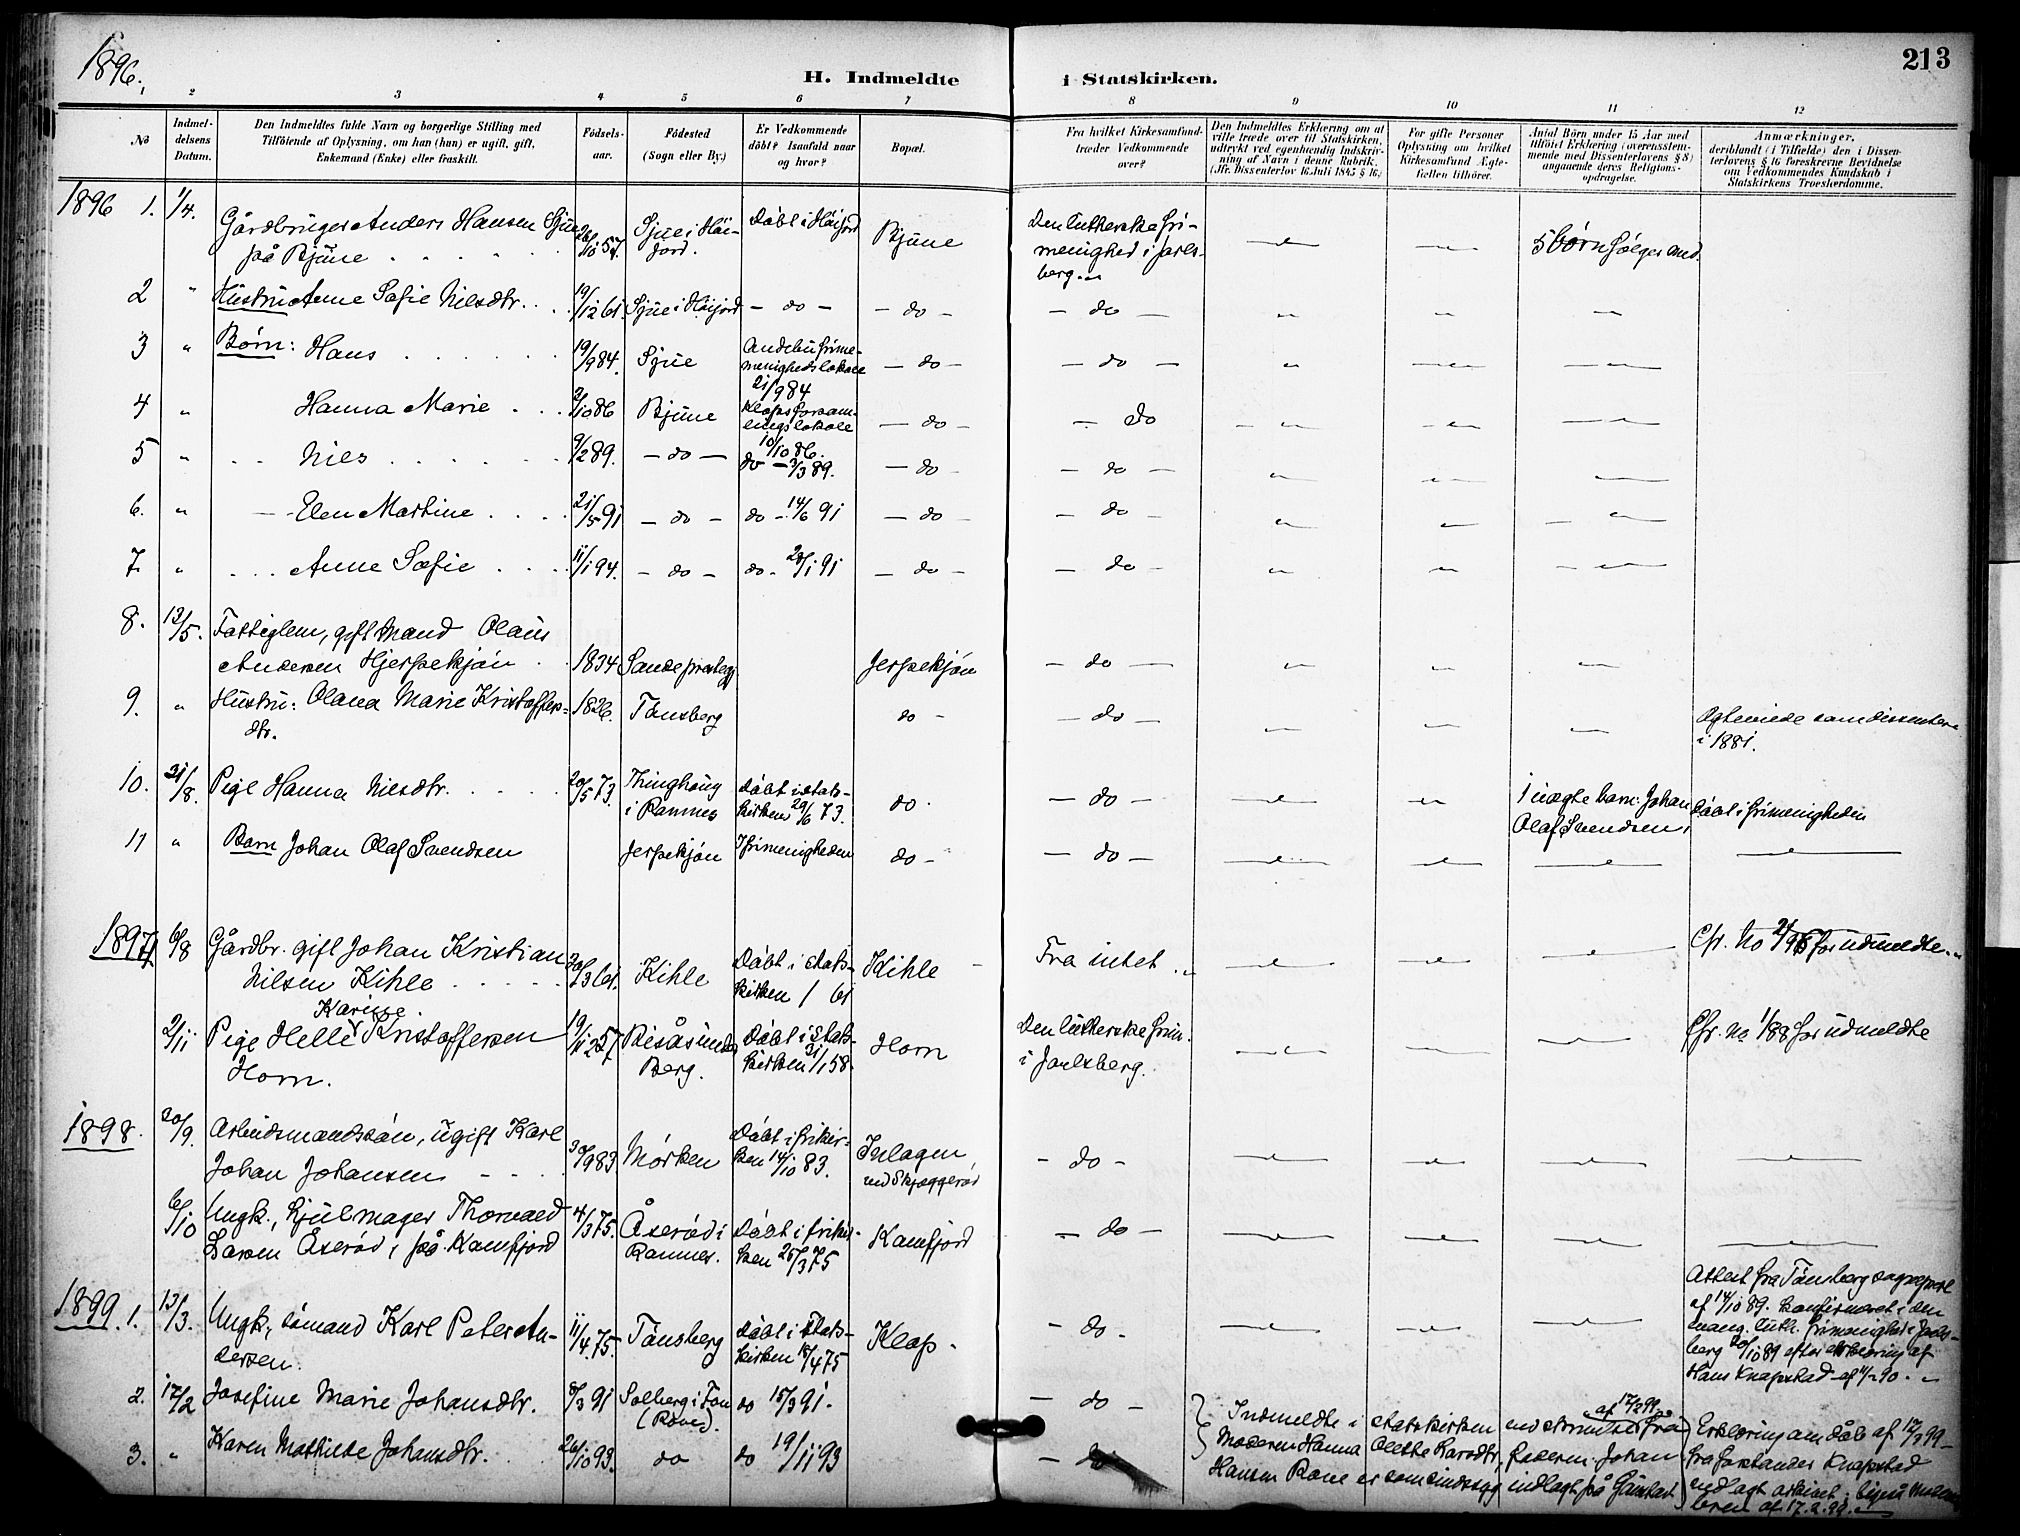 1896.
H. Indmeldte i Statskirken.
213
1 2 3 4 5 6 7 8 9 10 11 12
No
Indmeldelsens Datum.
Den Indmeldtes fulde Navn og borgerlige Stilling med
Tilföiende af Oplysning, om han (hun) er ugift, gift,
Enkemand (Enke) eller fraskilt.
Födselsaar.
Födested
(Sogn eller By.)
Er Vedkommende
döbt? Isaafald naar
og hvor?
Bopæl.
Fra hvilket Kirkesamfund
træder Vedkommende
over?
Den Indmeldtes Erklæring om at
ville træde over til Statskirken,
udtrykt ved egenhændig Indskrivning
af Navn i denne Rubrik.
(Jfr. Dissenterlov 16. Juli 1845 § 16.)
For gifte Personer
Oplysning om hvilket
Kirkesamfund Ægtefællen
tilhörer.
Antal Börn under 15 Aar med
tilföiet Erklæring (overensstemmende
med Dissenterlovens § 8)
angaaende deres Religionsopdragelse.
Anmærkninger,
deriblandt (i Tilfælde) den i Dissenterlovens
§ 16 foreskrevne Bevidnelse
om Vedkommendes Kundskab i
Statskirkens Troesherdomme.
1896 1. 1/4. Gårdbruger Anders Hansen Sjue
på Bjune 26/10 57. Sjue i Höijord. Döbt i Höijord Bjune
Den lutherske frimenighed i Jarlsberg. 5 børn følger med.
2 " Hustru Anne Sofie Nilsdtr. 19/12 61. Sjue i Höijord - do - - do - - do -
3 " Børn: Hans 19/9 84. Sjue Andebu frimenighedslokale 21/9 84 - do - - do -
4 " Hanna Marie 2/10 86 Bjune Klopsforsamlingslokale 10/10 86. - do - - do
5 " Nils 9/2 89. - do - do - 3/3 89. - do - - do -
6. " Elen Martine 21/5 91 - do - do - 14/6 91 - do - - do -
7. " Anne Sofie 11/1 94. - do - do - 28/1 91 - do - - do -
8. 13/5. Fattiglem, gift Mand Olaus
Andersen Hjerpekjön 1834 Sande Jerpekjön - do -
9. " Hustru: Olana Marie Kristoffersdtr. 1826. Tönsberg do - - do - Egteviede som dissentere
i 1881.
10. 31/8. Pige Hanna Nilsdtr. 20/5 73. Thinghaug
i Ramnes Döbt i statskirken 29/6 73. do. - do - 1 uægte barn: Johan
Olaf Svendsen, Döbt i frimenigheden
11 " Barn Johan Olaf Svendsen Jerpekjön I frimenigheden do - - do -
1897 6/8 Gårdbr. gift Johan Kristian
Nilsen Kihle 30/3 61. Kihle Döbt i statskirken / 61 Kihle - Fra intet. Cfr. No 2/96 for udmeldte.
2/11 Pige Helle Karine Kristoffersen
Horn. 19/12 57 Berg. Döbt i statskirken 31/1 58. Horn
Den lutherske frim.
i Jarlsberg. Cfr. No 1/88 for udmeldte
1898. 20/9. Arbeidsmandssön, ugift Karl
Johan Johansen 30/9 83 Mörken Döbt i frikirken 14/10 83. Inlagen
ved Skjæggerød - do -
6/10 Ungk., hjulmager Thorvald
Larsen Åserød, på Kamfjord 4/3 75. Åserød i
Ramnes. Döbt i frikirken 25/3 75 Kamfjord - do -
1899. 1. 13/3. Ungk, sömand Karl Peter Andersen.
11/4 75. Tönsberg Döbt i statskirken 18/4 75 Klop. - do -
Attest fra Tönsberg
af 14/10 89. Konfirmeret i den
evang. luth. frimenighed i Jarlsberg
20/10 89 efter erklæring af
Hans Knapstad
2. 17/2 Josefine Marie Johansdtr. 8/3 91 Solberg i Fon
(Rove). do 15/3 91. - do -
3. " Karen Mathilde Johansdtr. 26/10 93. do do 19/11 93 - do -
Indmeldte i statskirken ved skrivelse fra af 17/2 99
Moderen Hanna Olethe Larsdtr, Faderen Johan
Hansen Rove er som sindssyg indlagt på Gaustad.
Erklæring om dåb af 17/2 99
fra forstander Knapstad
vedlagt arkivet,
af 17.2.99.